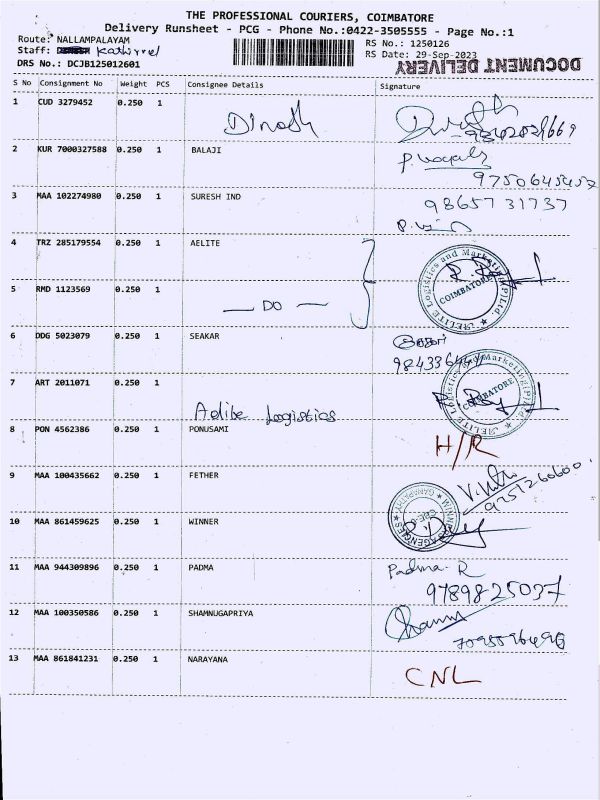 THE PROFESSIONAL COURIERS, COIMBATORE
Delivery Runsheet - PCG - Phone No.:0422-3505555 - Page No.:1
Route: NALLAMPALAYAM
RS No.: 1250126
Staff: Kathirvel
RS Date: 29-Sep-2023
DRS No.: DCJB125012601
DOCUMENT DELIVERY
S No Consignment No Weight PCS Consignee Details Signature
1 CUD 3279452 0.250 1 Dinesh
2 KUR 7000327588 0.250 1 BALAJI
9750645457
3 MAA 102274980 0.250 1 SURESH IND 98657 31737
4 TRZ 285179554 0.250 1 AELITE
AELITE Logistics and Marketing (P) Ltd. COIMBATORE
5 RMD 1123569 0.250 1 — DO —
6 DDG 5023079 0.250 1 SEAKAR
7 ART 2011071 0.250 1 Aelite Logistics
AELITE Logistics and Marketing (P) Ltd. COIMBATORE
8 PON 4562386 0.250 1 PONUSAMI H/R
9 MAA 100435662 0.250 1 FETHER
9251260600
10 MAA 861459625 0.250 1 WINNER
AGENCIES GANAPATHY CBE-6
11 MAA 944309896 0.250 1 PADMA Padma. R
9789825037
12 MAA 100350586 0.250 1 SHAMNUGAPRIYA
13 MAA 861841231 0.250 1 NARAYANA CNL